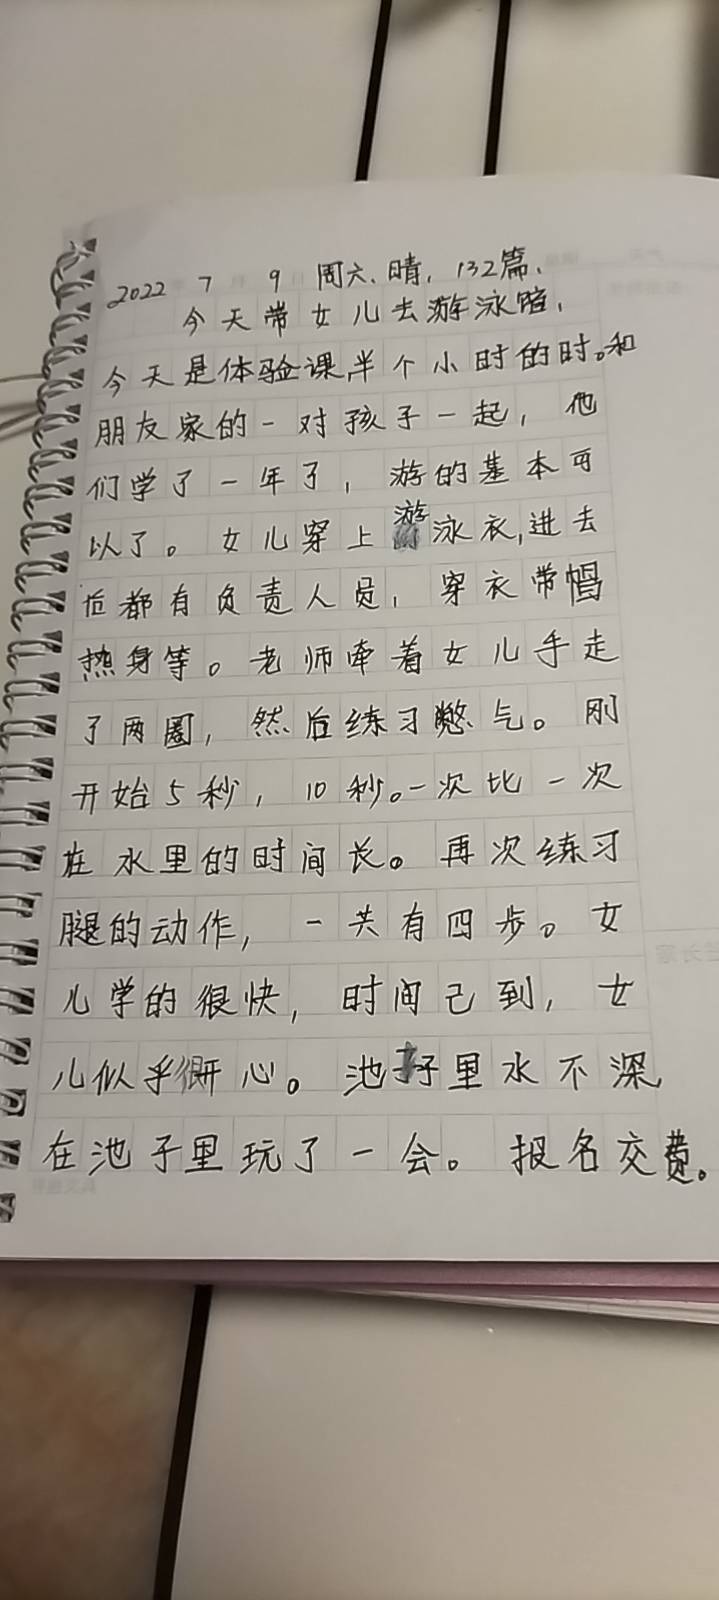 2022 7 9 周六、晴，132篇、
今天带女儿去游泳馆，
今天是体验课，半个小时的时。和
朋友家的一对孩子一起，他
们学了一年了，游的基本可
以了。女儿穿上游泳衣，进去
后都有负责人员，穿衣带帽
热身等。老师牵着女儿手走
了两圈，然后练习憋气。刚
开始5秒，10秒。一次比一次
在水里的时间长。再次练习
腿的动作，一共有四步。女
儿学的很快，时间己到，女
儿似乎很开心。池子里水不深，
在池子里玩了一会。报名交费。